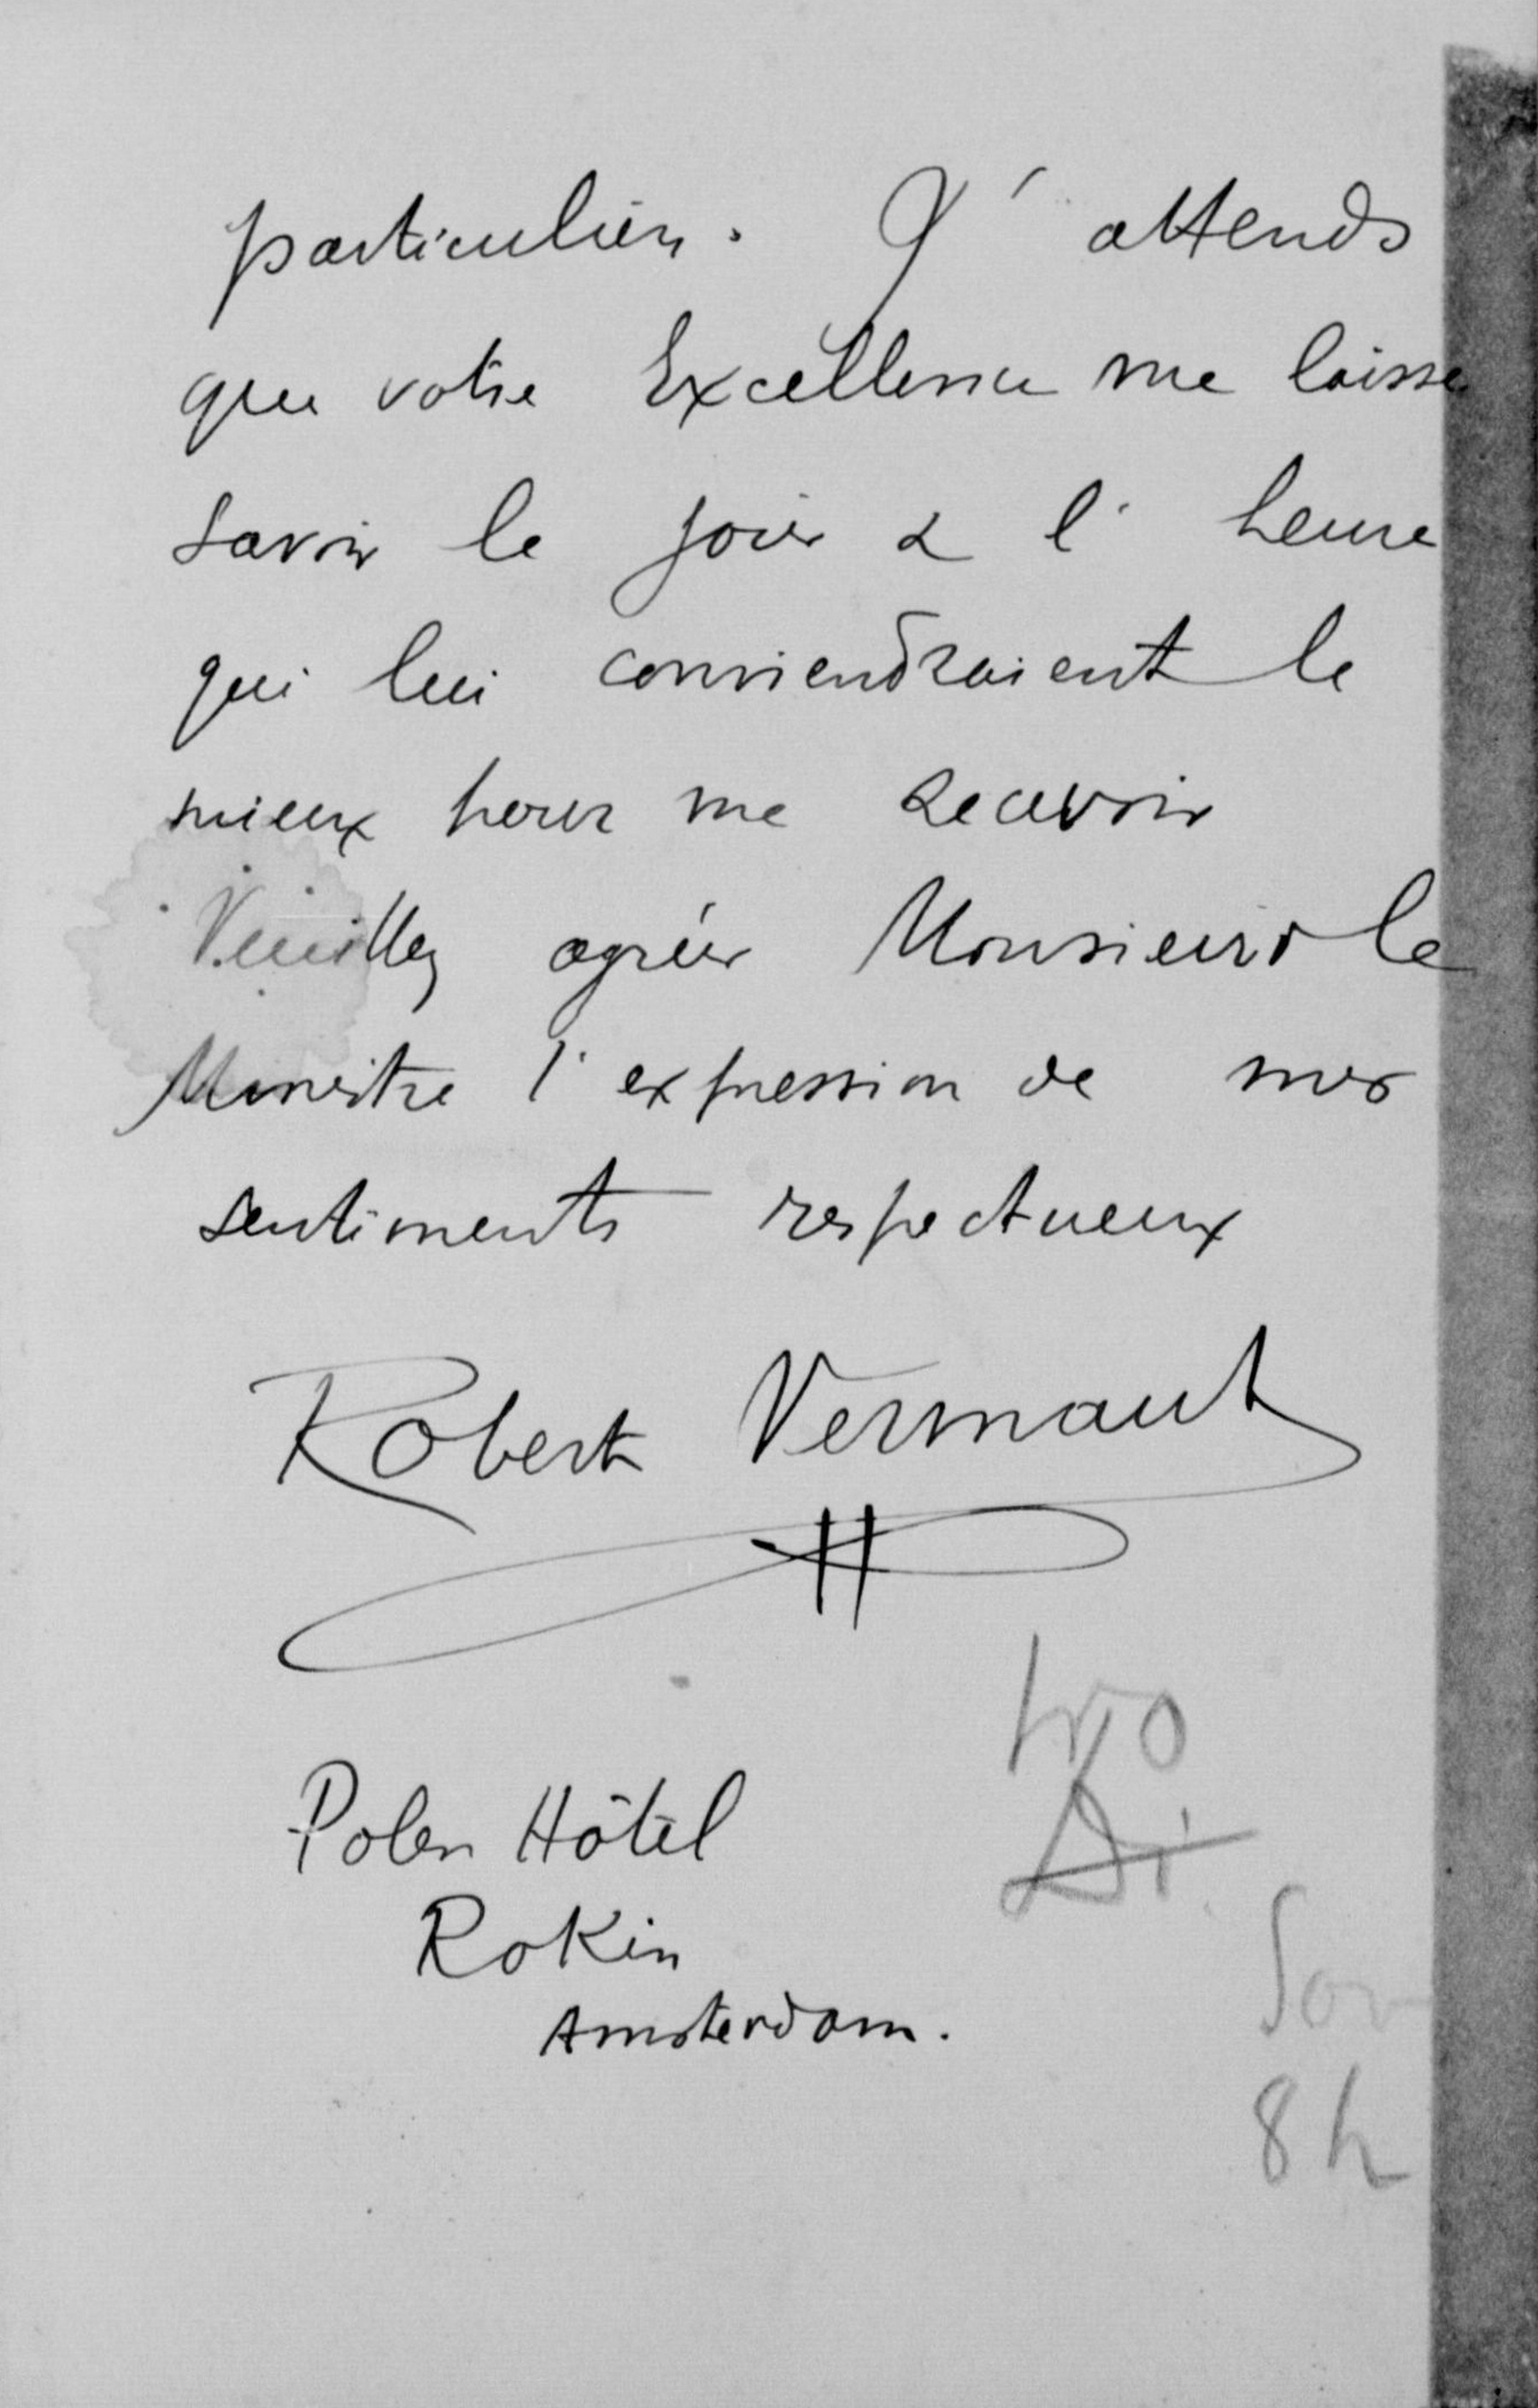 particuliers. J'attends
que votre Excellence me laisse
savoir le jour & l'heure
qui lui conviendraient le
mieux pour me recevoir
Veuillez agréer Monsieur le
Ministre l'expression de mes
sentiments respectueux
Robert Vermaut
Polen Hôtel
Rokin
Amsterdam.
8 h